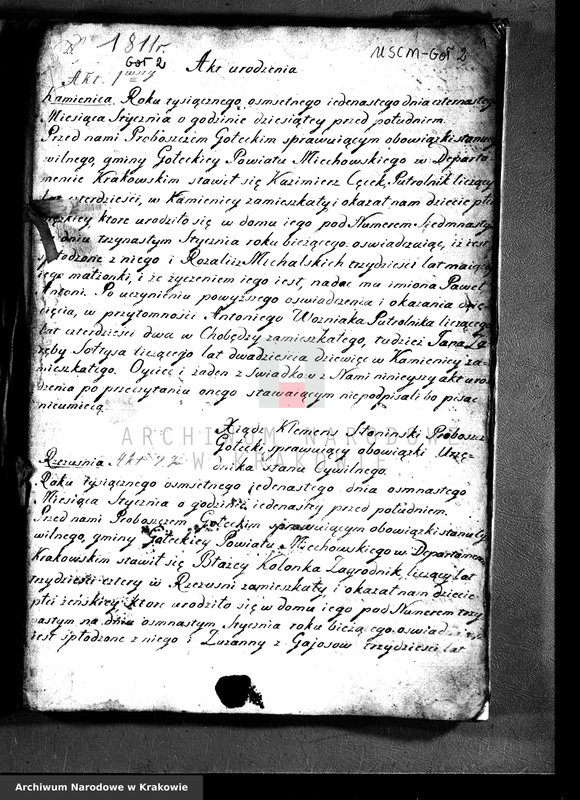 1811r.
Goł 2
USCM-Goł 2
Akt urodzenia
Akt 1wszy
Kamienica. Roku tysiącznego osmsetnego iedenastego dnia czternastego
Miesiąca Stycznia o godzinie dziesiątey przed południem.
Przed nami Proboszczem Gołeckim sprawuiącym obowiązki stanu cy
wilnego, gminy Gołeckiey Powiatu Miechowskiego w Departa
mencie Krakowskim stawił się Kazimierz Cęcek, Putrolnik liczący
lat czterdzieści, w Kamienicy zamieszkały i okazał nam dziecie płci
męzkiey ktore urodziło się w domu iego pod Numerem Siedmnastym
dniu trzynastym Stycznia roku bieżącego. oswiadczaiąc, iż iest
spłodzone z niego i Rozalii z Michalskich trzydzieści lat maiącey
iego małżonki, i że życzeniem iego iest, nadać mu imiona Paweł
Antoni. Po uczynieniu powyższego oswiadczenia i okazania dzie
cięcia, w przytomności Antoniego Wozniaka Putrolnika liczącego
lat czterdzieści dwa w Chobędzy zamieszkałego, tudzież Jana Za
ręby Sołtysa liczącego lat dwadzieścia dziewięć w Kamienicy za
mieszkałego. Oyciec i żaden z swiadkow z Nami ninieyszy akt uro
dzenia po przeczytaniu onego stawaiącym niepodpisali bo pisać
nieumieią
Xiądz Klemens Słoninski Proboszcz
Gołecki sprawuiący obowiązki Urzę-
dnika stanu Cywilnego.
ARCHIWUM NARODOWE
W KRAKOWIE
Rzezusnia Akt 2
Roku tysiącznego osmsetnego jedenastego dnia osmnastego
Miesiąca Stycznia o godzinie iedenastey przed południem.
Przed nami Proboszczem Gołeckim sprawuiącym obowiązki stanu Cy
wilnego, gminy Gołeckiey Powiatu Miechowskiego w Departamencie
Krakowskim stawił się Błażey Kolonka Zagrodnik, liczący lat
trzydzieści cztery w Rzezusni zamieszkały i okazał nam dziecie
płci żeńskiey ktore urodziło się w domu iego pod Numerem trzy
nastym na dniu osmnastym Stycznia roku bieżącego. oswiadczaiąc
iest spłodzone z niego i Zuzanny z Gajosow trzydzieści lat
Archiwum Narodowe w Krakowie